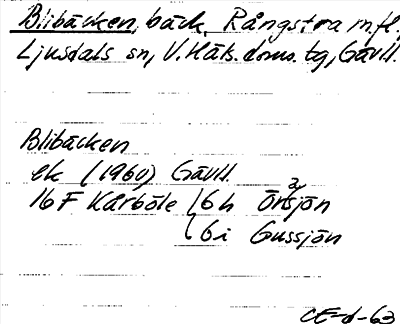 Blibäcken, bäck, Rångstra m.fl.,
Ljusdals sn, V.Häls. doms. tg, Gävll.
Blibäcken
ek (1960) Gävll.
16F Kårböle 6h Örasjön
6i Gussjön
CE-d-63